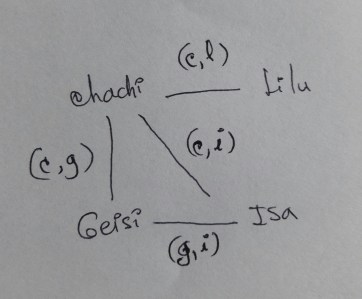 (c,l)
chachi Lilu
(c,g) (c,i)
Geisi Isa
(g,i)